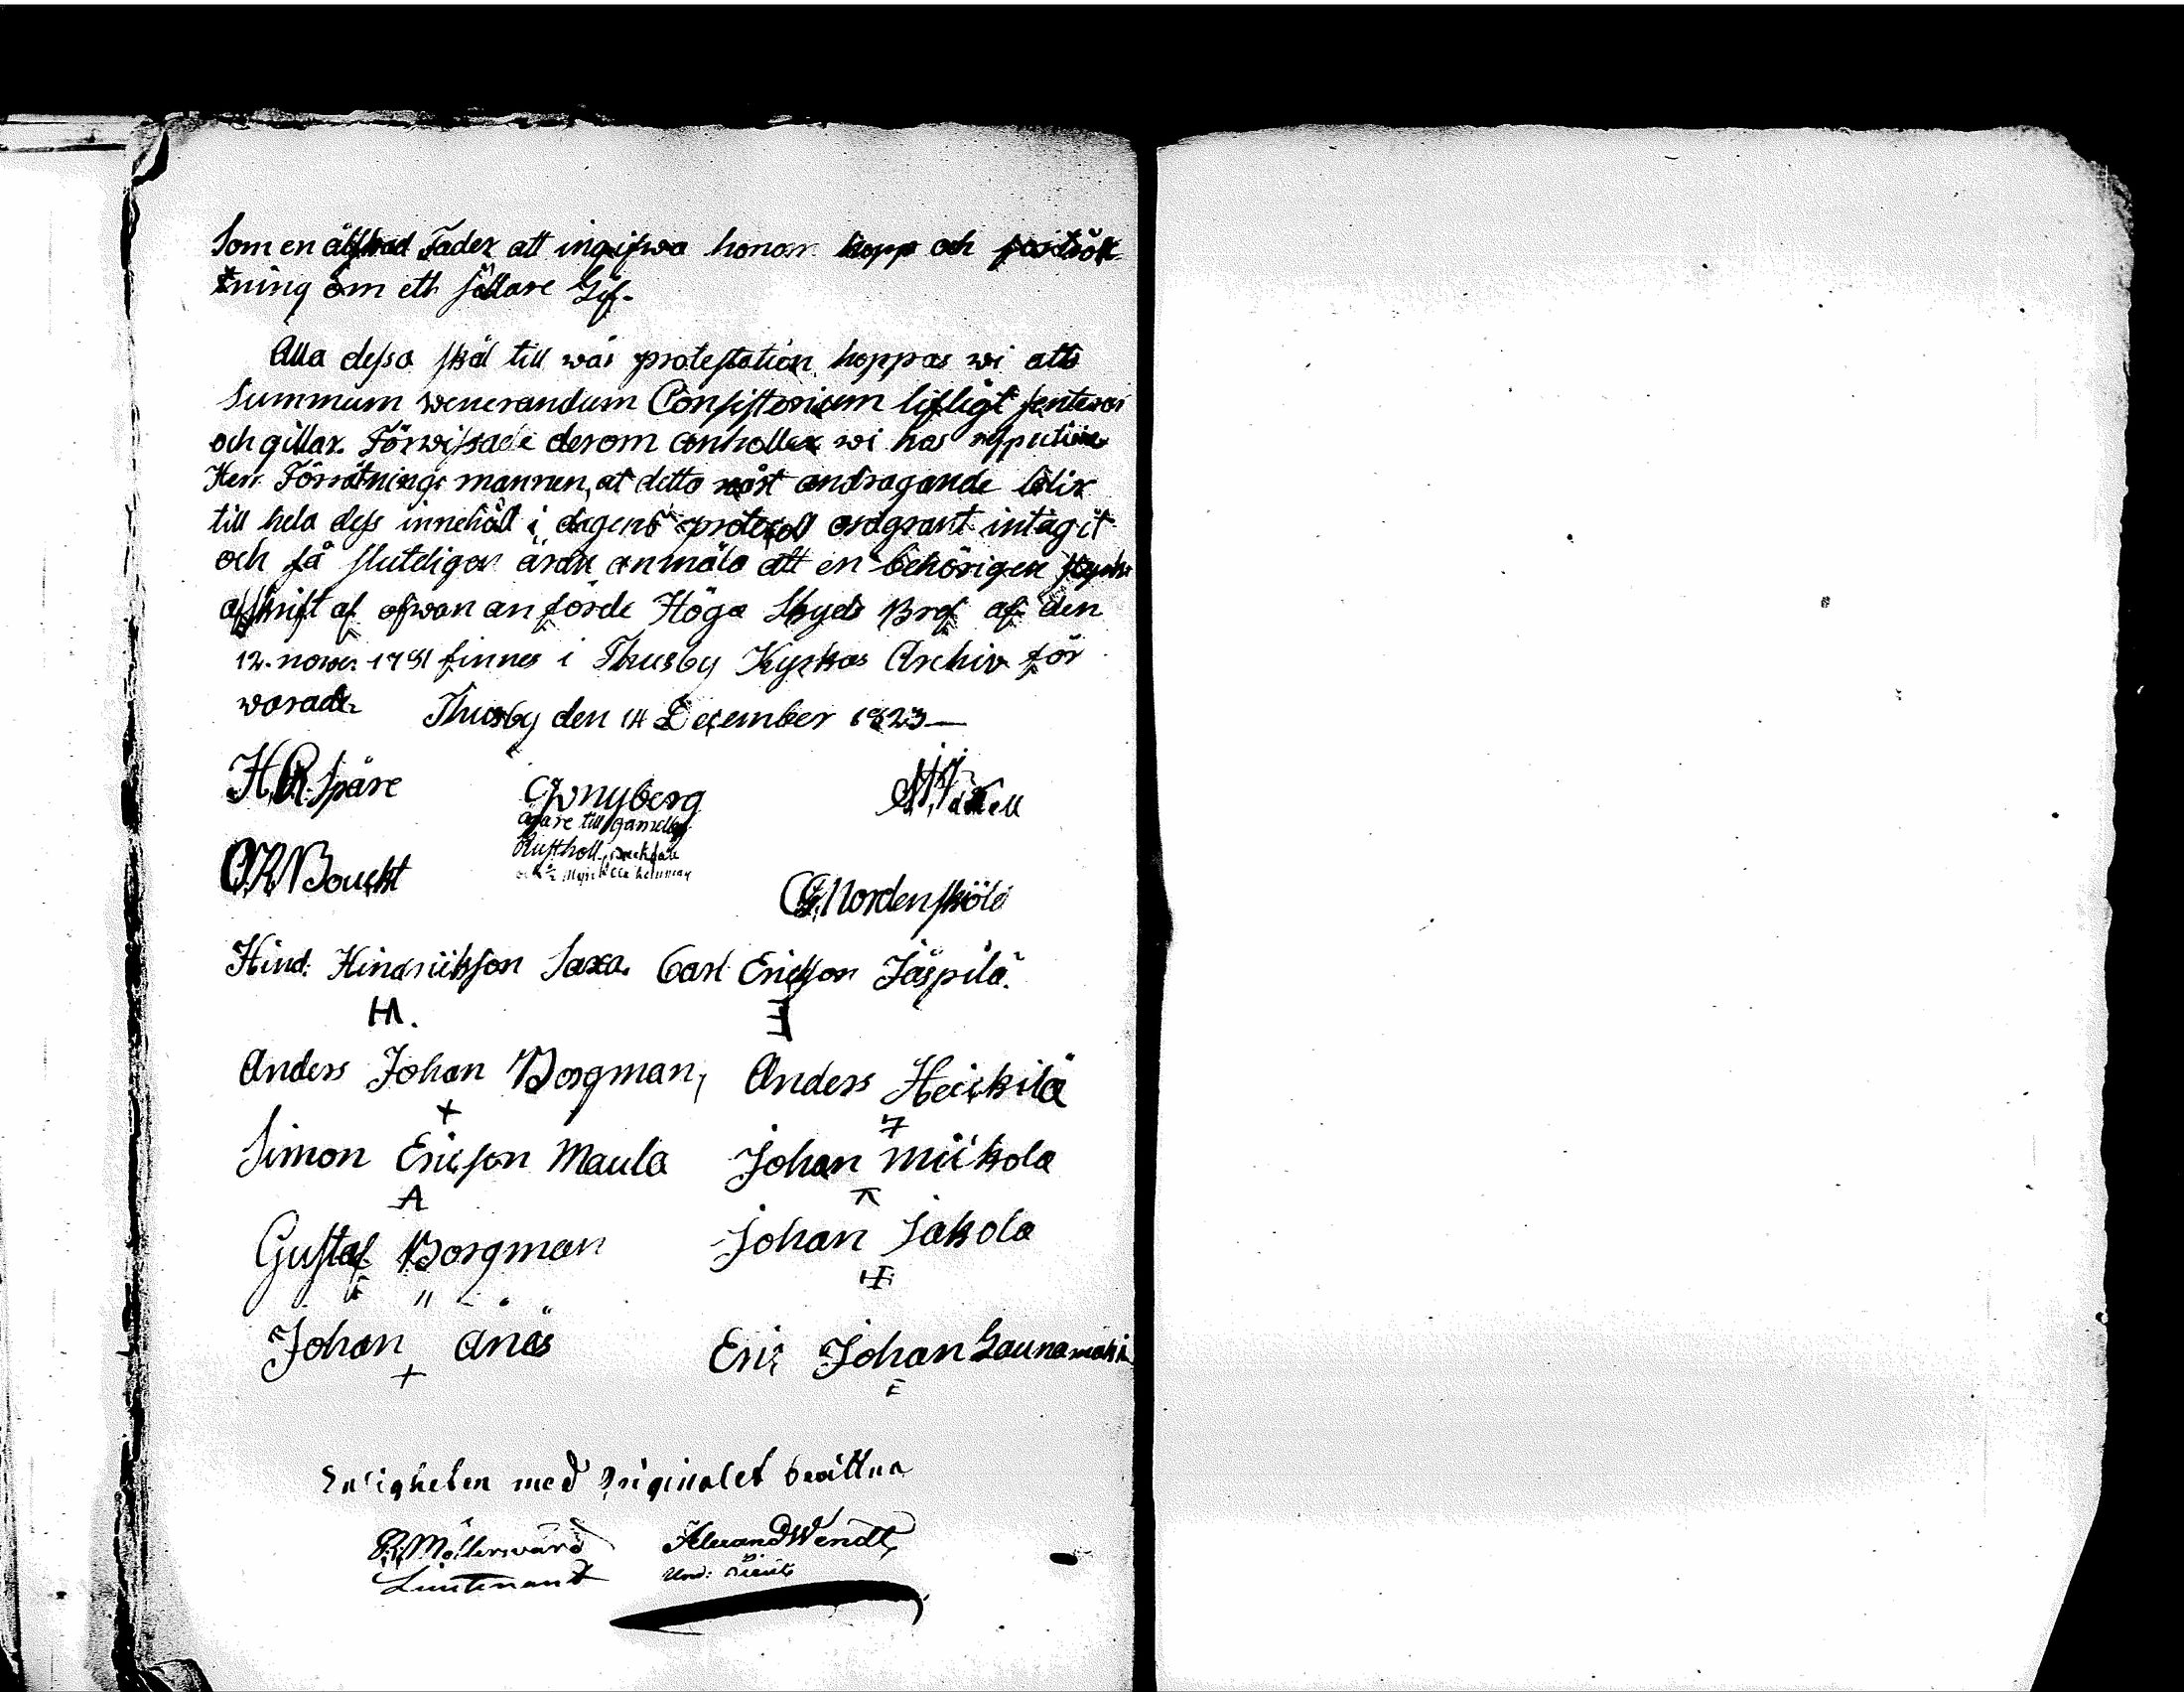 Som en älskad Fader att ingifwa honom hopp och förtrös-
tning om ett sällare Lif.
Alla dessa skäl till wår protestation hoppas wi att
Summum wenerandum Consistorium lifligt senterar
och gillar. Förwissade derom anholler wi hos respective
Herr Förrätnings mannen, at detta wårt andragande blir
till hela dess innehåll i dagens protocoll ordgrant intagit
och få sluteligen äran anmäla att en behörigen
afskrift af ofwan anförde Höga Skyds Bref af den
12. nowr. 1781 finnes i Thusby Kyrkas Archiv för
warade. Thusby den 14 December 1823
H R Spåre CJ Nyberg
ägare till Gamelby
Rusthåll
C.R. Boucht
CG. Nordenskiöld
Hind: Hindricksson Saxa. Carl Ericsson Jäspilä.
HI. E
Anders Johan Borgman, Anders Heickilä
+
Simon Ericson Maula Johan Miikola
A
Gustaf Borgman Johan Jakola
Johan Anäs Eric Johan Launamäki
+ E
Enligheten med Originalet bevittna
R. Möllerswärd Alexand Wendt
Lieutenant